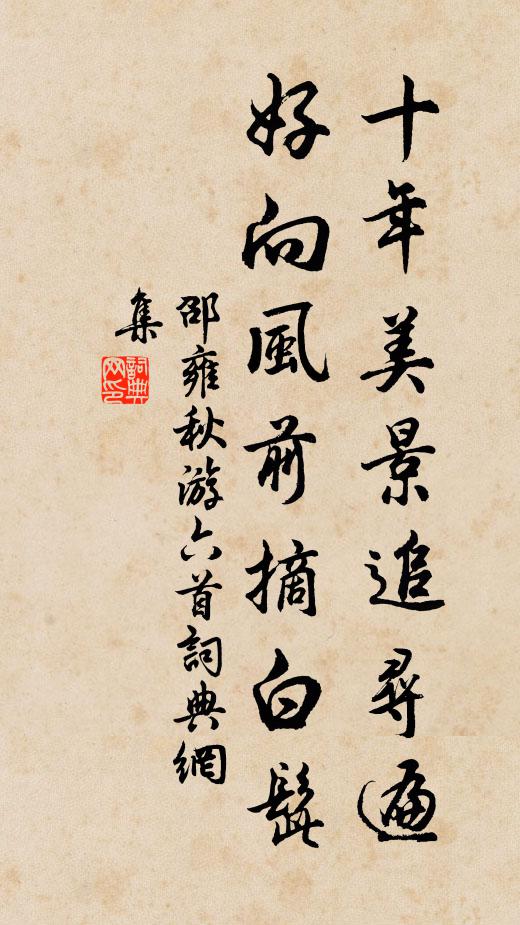 十年美景追尋遍
好向風前摘白髭
邵雍秋游六首詞典網
集
詞典
网印